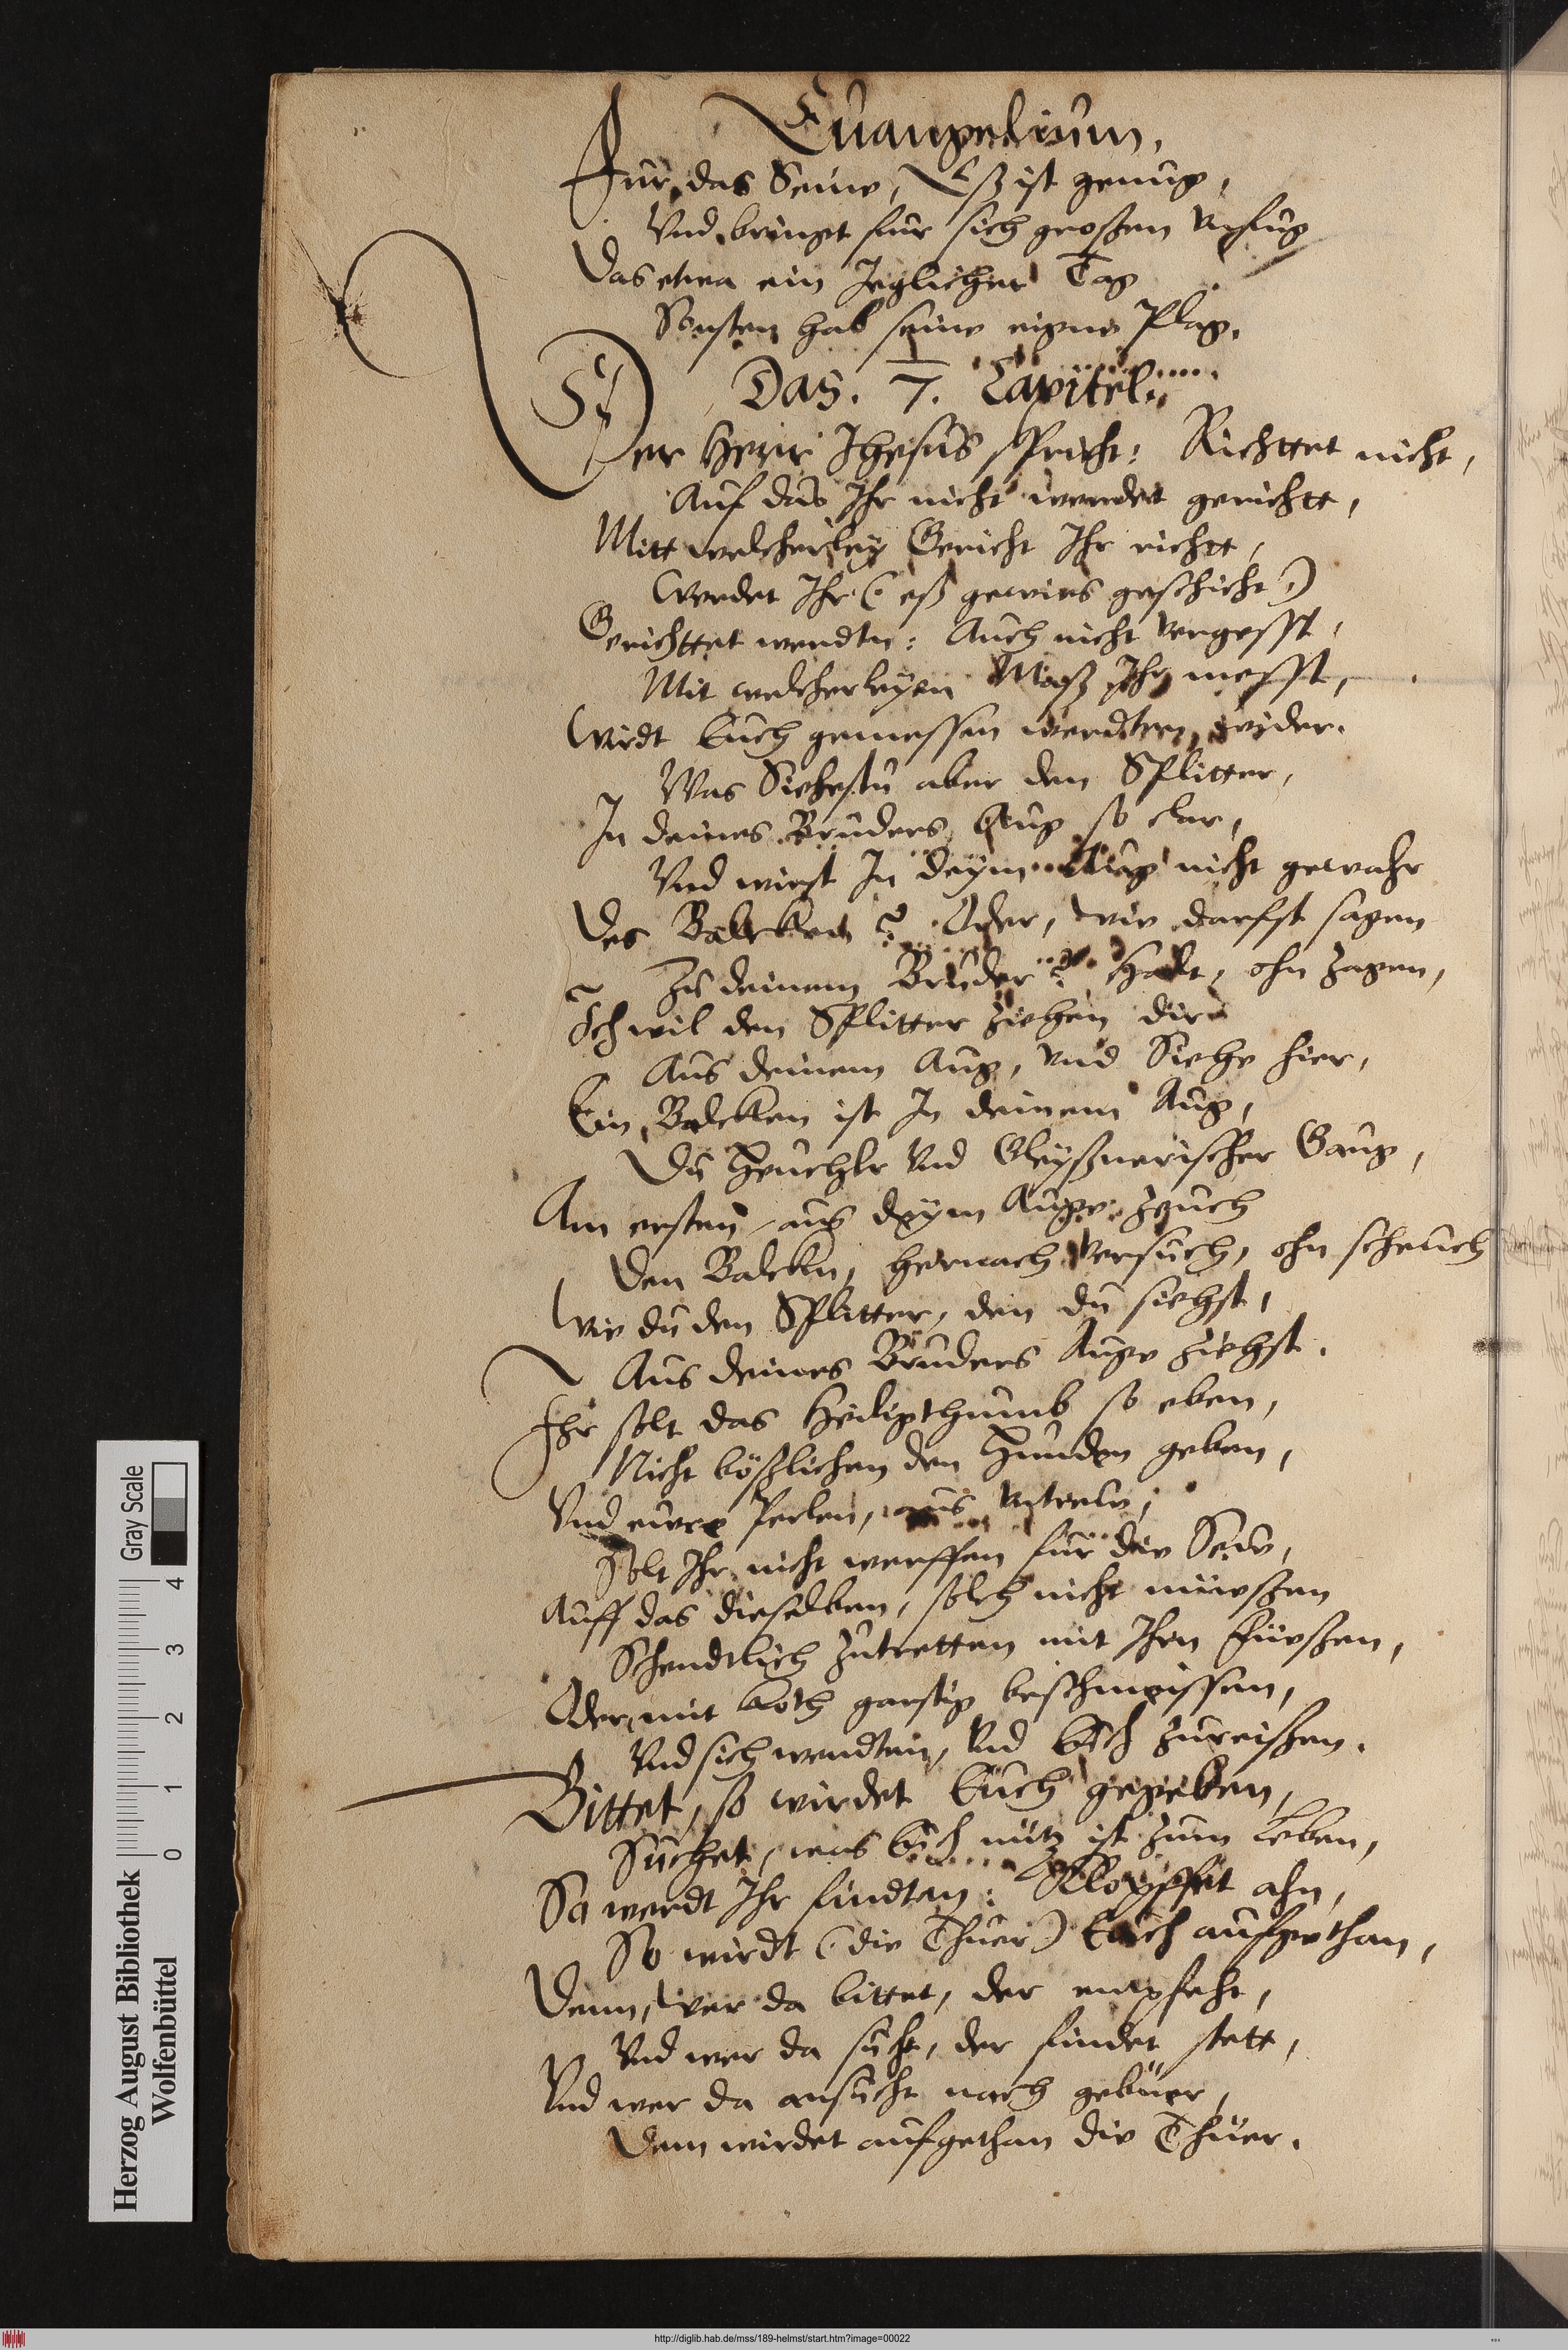 Euangelium.
Fur das Seine, Eß ist genug,
Vnd bringet fur sich großen vnfug
Das etwa ein Jeglicher Tag
Sonsten hab seine eigne Plag.
Das. 7. Capitel.
Der Herr Jhesus spricht: Richttet nicht,
Auf das Ihr nicht werdet gerichtt,
Mitt welcherley Gericht Ihr richtt,
Werdet Ihr (eß gewies geschicht)
Gerichttet werdtn: Auch nicht vergesst,
Mit welcherleyen Maß Ihr messt,
Wirdt Euch gemessen werdten wider.
Was Siehestu aber den Splitter,
In deines Bruders Aug so clar,
Vnd wirst In deym Aug nicht gewahr
Des Balcken? Oder, wie darfst sagen
Zu deinem Bruder? Halt, ohn zagen,
Ich wil den Splitter ziehen dir
Aus deinem Aug, vnd Siehe hier,
Ein Balcken ist In deinem Aug,
Du Heuchler Vnd Gleyßnerischer Gaug,
Am ersten aus deym Auge zeuch
Den Balckn, hernach versuch, ohn scheuch
Wie du den Splitter, den du siehst,
Aus deines Bruders Auge ziehst.
Ihr solt das Heiligthumb so eben,
Nicht bößlichen den Hunden geben,
Vnd eure Perlen, aus vntrew,
Solt Ihr nicht werffen fur die Sew,
Auff das dieselben, solch nicht müeßen
Schendtlich zutretten mit Ihrn Füeßen,
Oder mit koth garstig beschmeissen,
Vnd sich wendten, Vnd Euch zureißen.
Bittet, so wirdet Euch gegeben,
Suchet, was Euch nütz ist zum Leben,
So werdt Ihr findten: Klopffet ahn,
So wirdt (die Thuer) Euch aufgethan,
Denn, wer da bittet, der empfeht,
Vnd wer da sucht, der findet stett,
Vnd wer da ansucht nach gebüer,
Dem wirdet aufgethan die Thüer.
Herzog August Bibliothek
Wolfenbüttel
0 1 2 3 4
Gray Scale
http://diglib.hab.de/mss/189-helmst/start.htm?image=00022